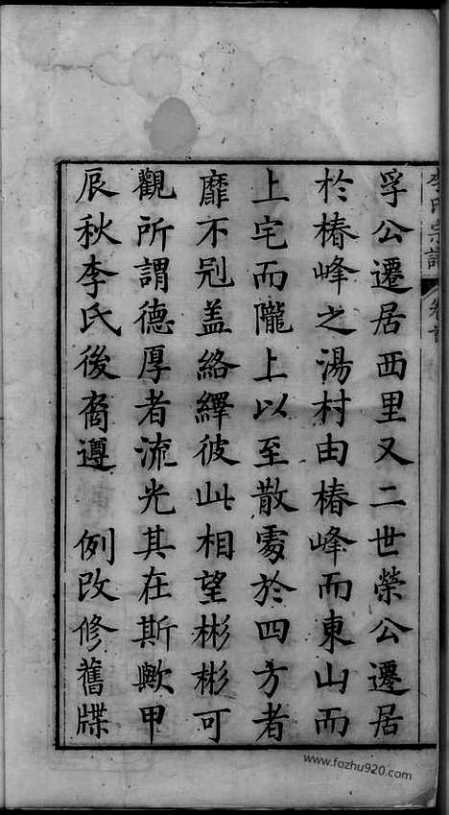 李氏宗譜 卷首
孚公遷居西里又二世榮公遷居
於椿峰之湯村由椿峰而東山而
上宅而隴上以至散處於四方者
靡不冠盖絡繹彼此相望彬彬可
觀所謂德厚者流光其在斯歟甲
辰秋李氏後裔遵 例改修舊牒
www.fozhu920.com